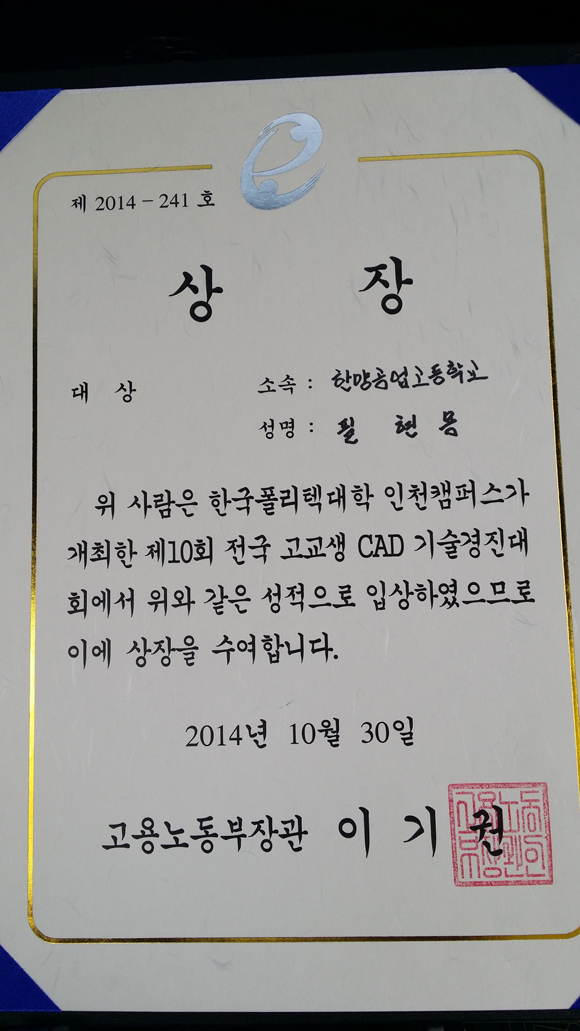 제 2014 - 241 호
상 장
대 상
소속 : 한양공업고등학교
성명 : 필 현 몸
위 사람은 한국폴리텍대학 인천캠퍼스가
개최한 제10회 전국 고교생 CAD 기술경진대
회에서 위와 같은 성적으로 입상하였으므로
이에 상장을 수여합니다.
2014년 10월 30일
고용노동부장관 이 기 권